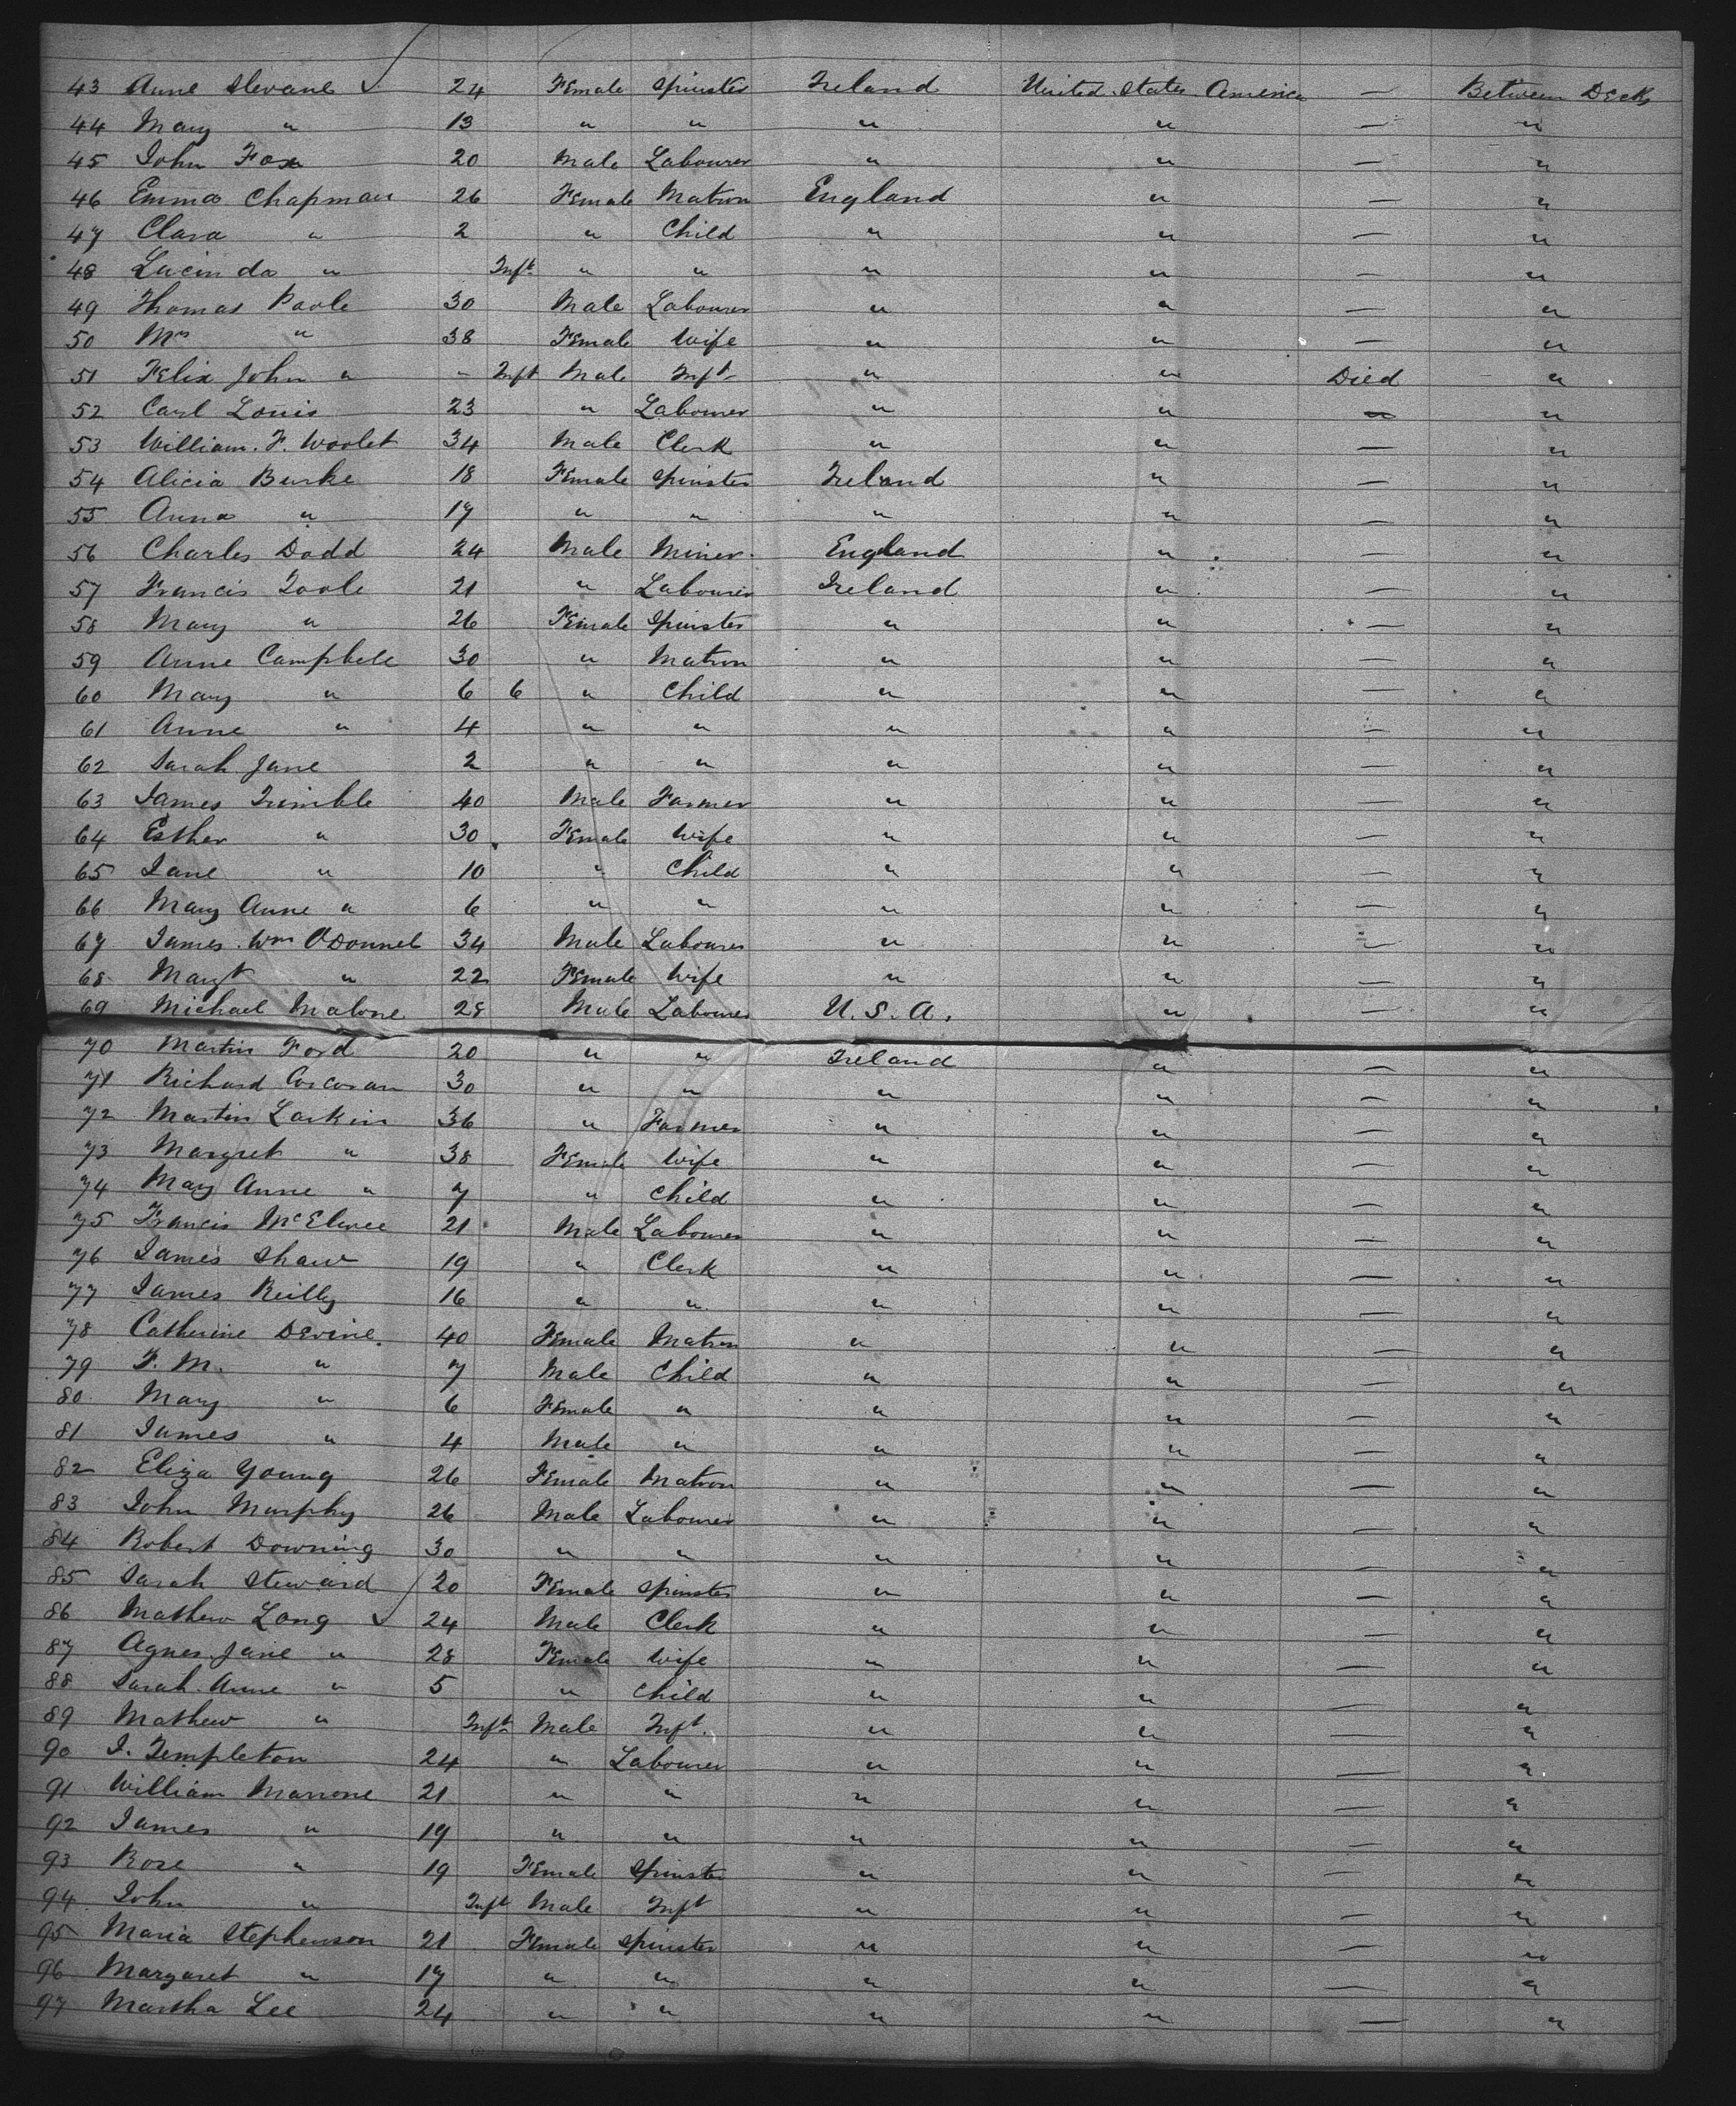 43 Anne Slevane 24 Female Spinster Ireland United States America — Between Decks
44 Mary " 13 " " " " — "
45 John Fox 20 Male Labourer " " — "
46 Emma Chapman 26 Female Matron England " — "
47 Clara " 2 " Child " " — "
48 Lucinda " Inft " " " " — "
49 Thomas Poole 30 Male Labourer " " — "
50 Mrs " 38 Female Wife " " — "
51 Felix John " - Inft Male Inft " " Died "
52 Carl Louis 23 " Labourer " " — "
53 William. F. Woolet 34 Male Clerk " " — "
54 Alicia Burke 18 Female Spinster Ireland " — "
55 Anna " 17 " " " " — "
56 Charles Dodd 24 Male Miner England " — "
57 Francis Toole 21 " Labourer Ireland " — "
58 Mary " 26 Female Spinster " " — "
59 Anne Campbell 30 " Matron " " — "
60 Mary " 6 6 " Child " " — "
61 Anne " 4 " " " " — "
62 Sarah Jane 2 " " " " — "
63 James Trimble 40 Male Farmer " " — "
64 Esther " 30 Female Wife " " — "
65 Jane " 10 " Child " " — "
66 Mary Anne " 6 " " " " — "
67 James Wm ODonnel 34 Male Labourer " " — "
68 Margt " 22 Female Wife " " — "
69 Michael Malone 28 Male Labourer U.S.A. " — "
70 Martin Ford 20 " " Ireland " — "
71 Richard Corcoran 30 " " " " — "
72 Martin Larkin 36 " Farmer " " — "
73 Margret " 38 Female Wife " " — "
74 Mary Anne " 7 " Child " " — "
75 Francis McElwee 21 Male Labourer " " — "
76 James Shaw 19 " Clerk " " — "
77 James Reilly 16 " " " " — "
78 Catherine Devine. 40 Female Matron " " — "
79 F. M. " 7 Male Child " " — "
80 Mary " 6 Female " " " — "
81 James " 4 Male " " " — "
82 Eliza Young 26 Female Matron " " — "
83 John Murphy 26 Male Labourer " " — "
84 Robert Downing 30 " " " " — "
85 Sarah Steward 20 Female Spinster " " — "
86 Mathew Long 24 Male Clerk " " — "
87 Agnes Jane " 28 Female Wife " " — "
88 Sarah Anne " 5 " Child " " — "
89 Mathew " Inft Male Inft. " " — "
90 J. Templeton 24 " Labourer " " — "
91 William Marrone 21 " " " " — "
92 James " 19 " " " " — "
93 Rose " 19 Female Spinster " " — "
94 John " Inft Male Inft " " — "
95 Maria Stephenson 21 Female Spinster " " — "
96 Margaret " 17 " " " " — "
97 Martha Lee 24 " " " " — "